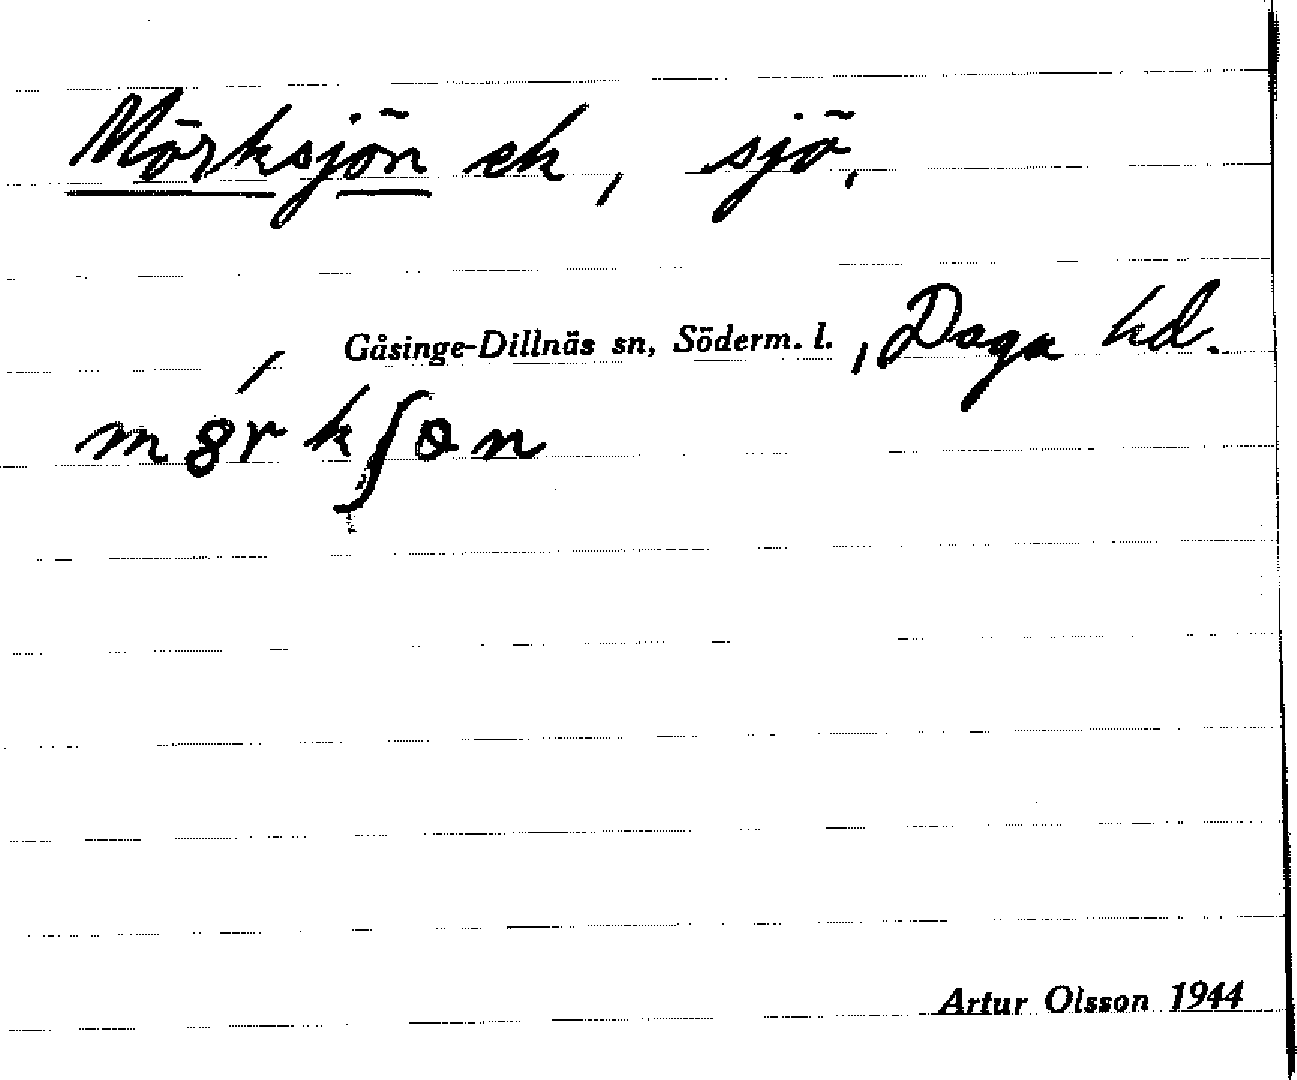 Mörksjön ek, sjö,
Gåsinge-Dillnäs sn, Söderm. l., Daga hd.
m8rkʃɵn
Artur Olsson 1944